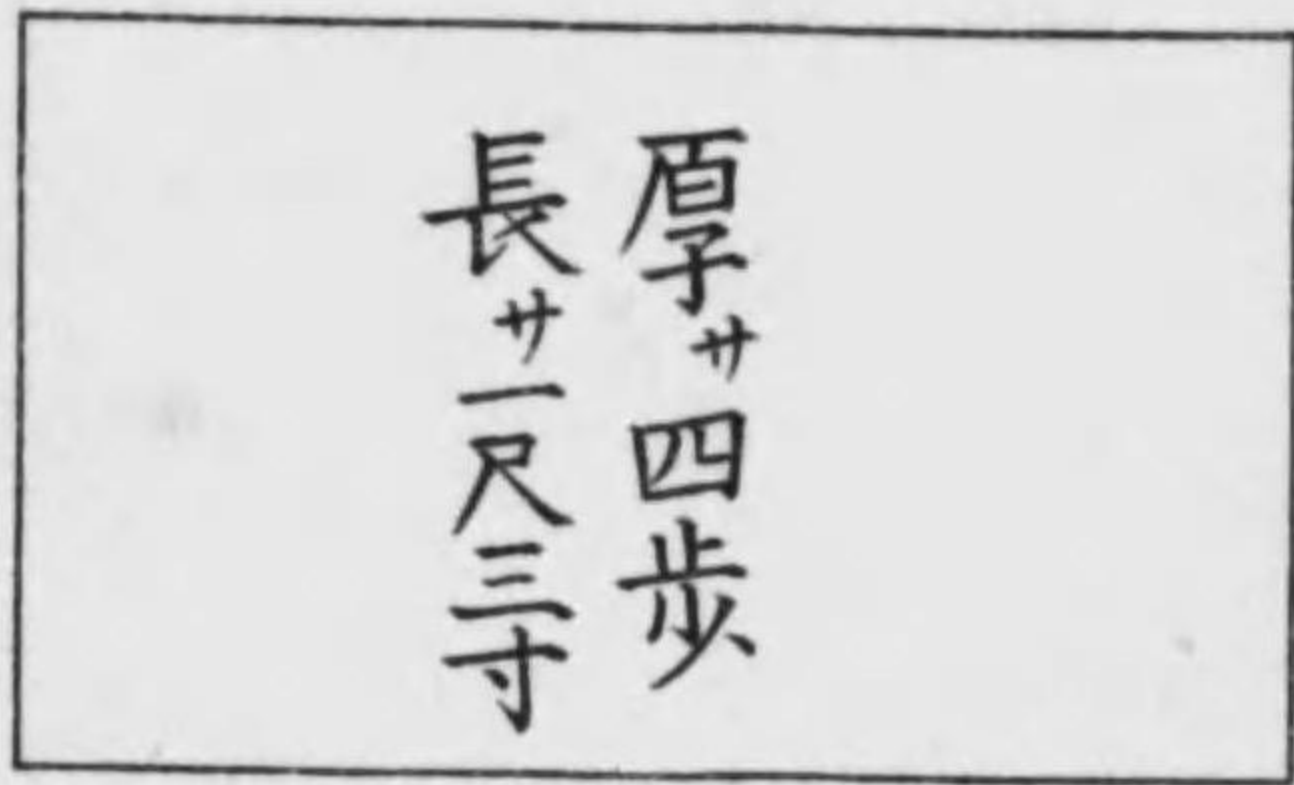 厚サ四歩
長サ一尺三寸